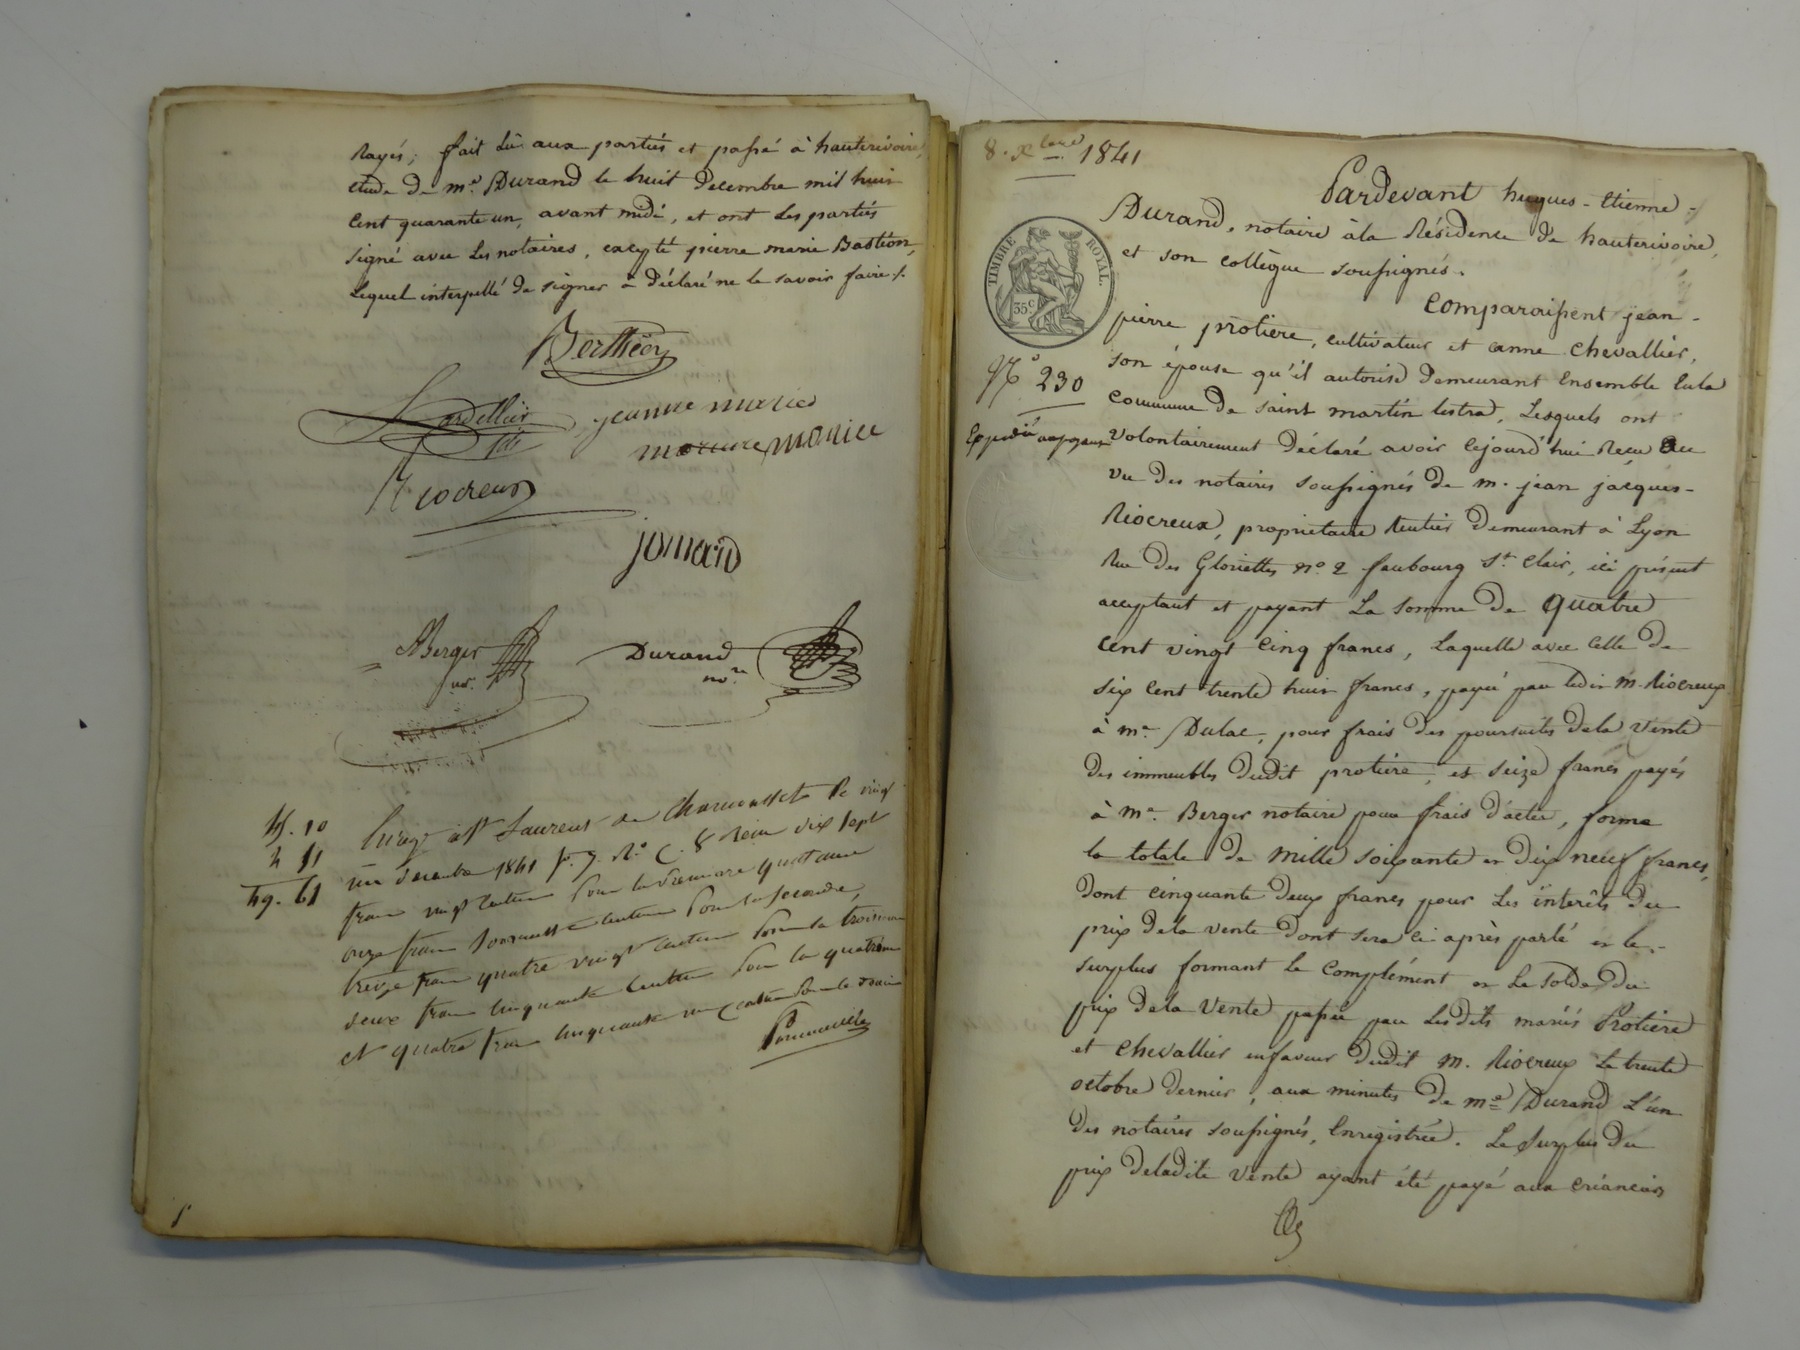 rayés; fait lû aux parties et passé à hauterivoire,
étude de me. Durand le huit decembre mil huit
cent quarante un, avant midi, et ont les parties
signé avec les notaires, excepté pierre marie Bastion,
lequel interpellé de signer a déclaré ne le savoir faire /.
Berthéon
jeanne marie
Riocreux
jomard
Berger
Durand
nore
49. 61
Enregé à St Laurent de Chamousset le vingt
un décembre 1841 fo. 7. Ro C. 8 Reçu dix sept
francs vingt centimes pour la première quittance
onze francs soixante centimes pour la seconde,
treize francs quatre vingt centimes pour la troisième
deux francs cinquante centimes pour la quatrième
et quatre francs cinquante un centimes pour le dixième
8. Xbre 1841
Pardevant hugues-Etienne-
Durand, notaire à la Résidence de hauterivoire,
et son collègue soussignés.
TIMBRE ROYAL
35c
Comparaissent jean-
pierre protiere, cultivateur et anne Chevallier,
No 230
son épouse qu'il autorise demeurant Ensemble En la
commune de saint martin lestra, Lesquels ont
volontairement déclaré avoir cejourd'hui Recu au
vu des notaires soussignés de m. jean jacques-
Riocreux, propriétaire Rentier demeurant à Lyon
Rue des Gloriettes no. 2 faubourg St. Clair, ici présent
acceptant et payant La somme de quatre
cent vingt cinq francs, Laquelle avec celle de
six cent trente huit francs, payée par ledit m. Riocreux
à me. Dulac, pour frais des poursuites de la vente
des immeubles dudit protiere, et seize francs payés
à me. Berger notaire pour frais d'actes, forme
le totale de mille soixante et dix neuf francs,
dont cinquante deux francs pour les intérêts du
prix de la vente dont sera ci après parlé et le-
surplus formant le complément et le solde du
prix de la vente passée par lesdits mariés Protiere
et Chevallier en faveur dudit m. Riocreux Le trente
octobre dernier, aux minutes de me Durand L'un
des notaires soussignés, Enregistrée. Le surplus du
prix de ladite vente ayant été payé aux créanciers